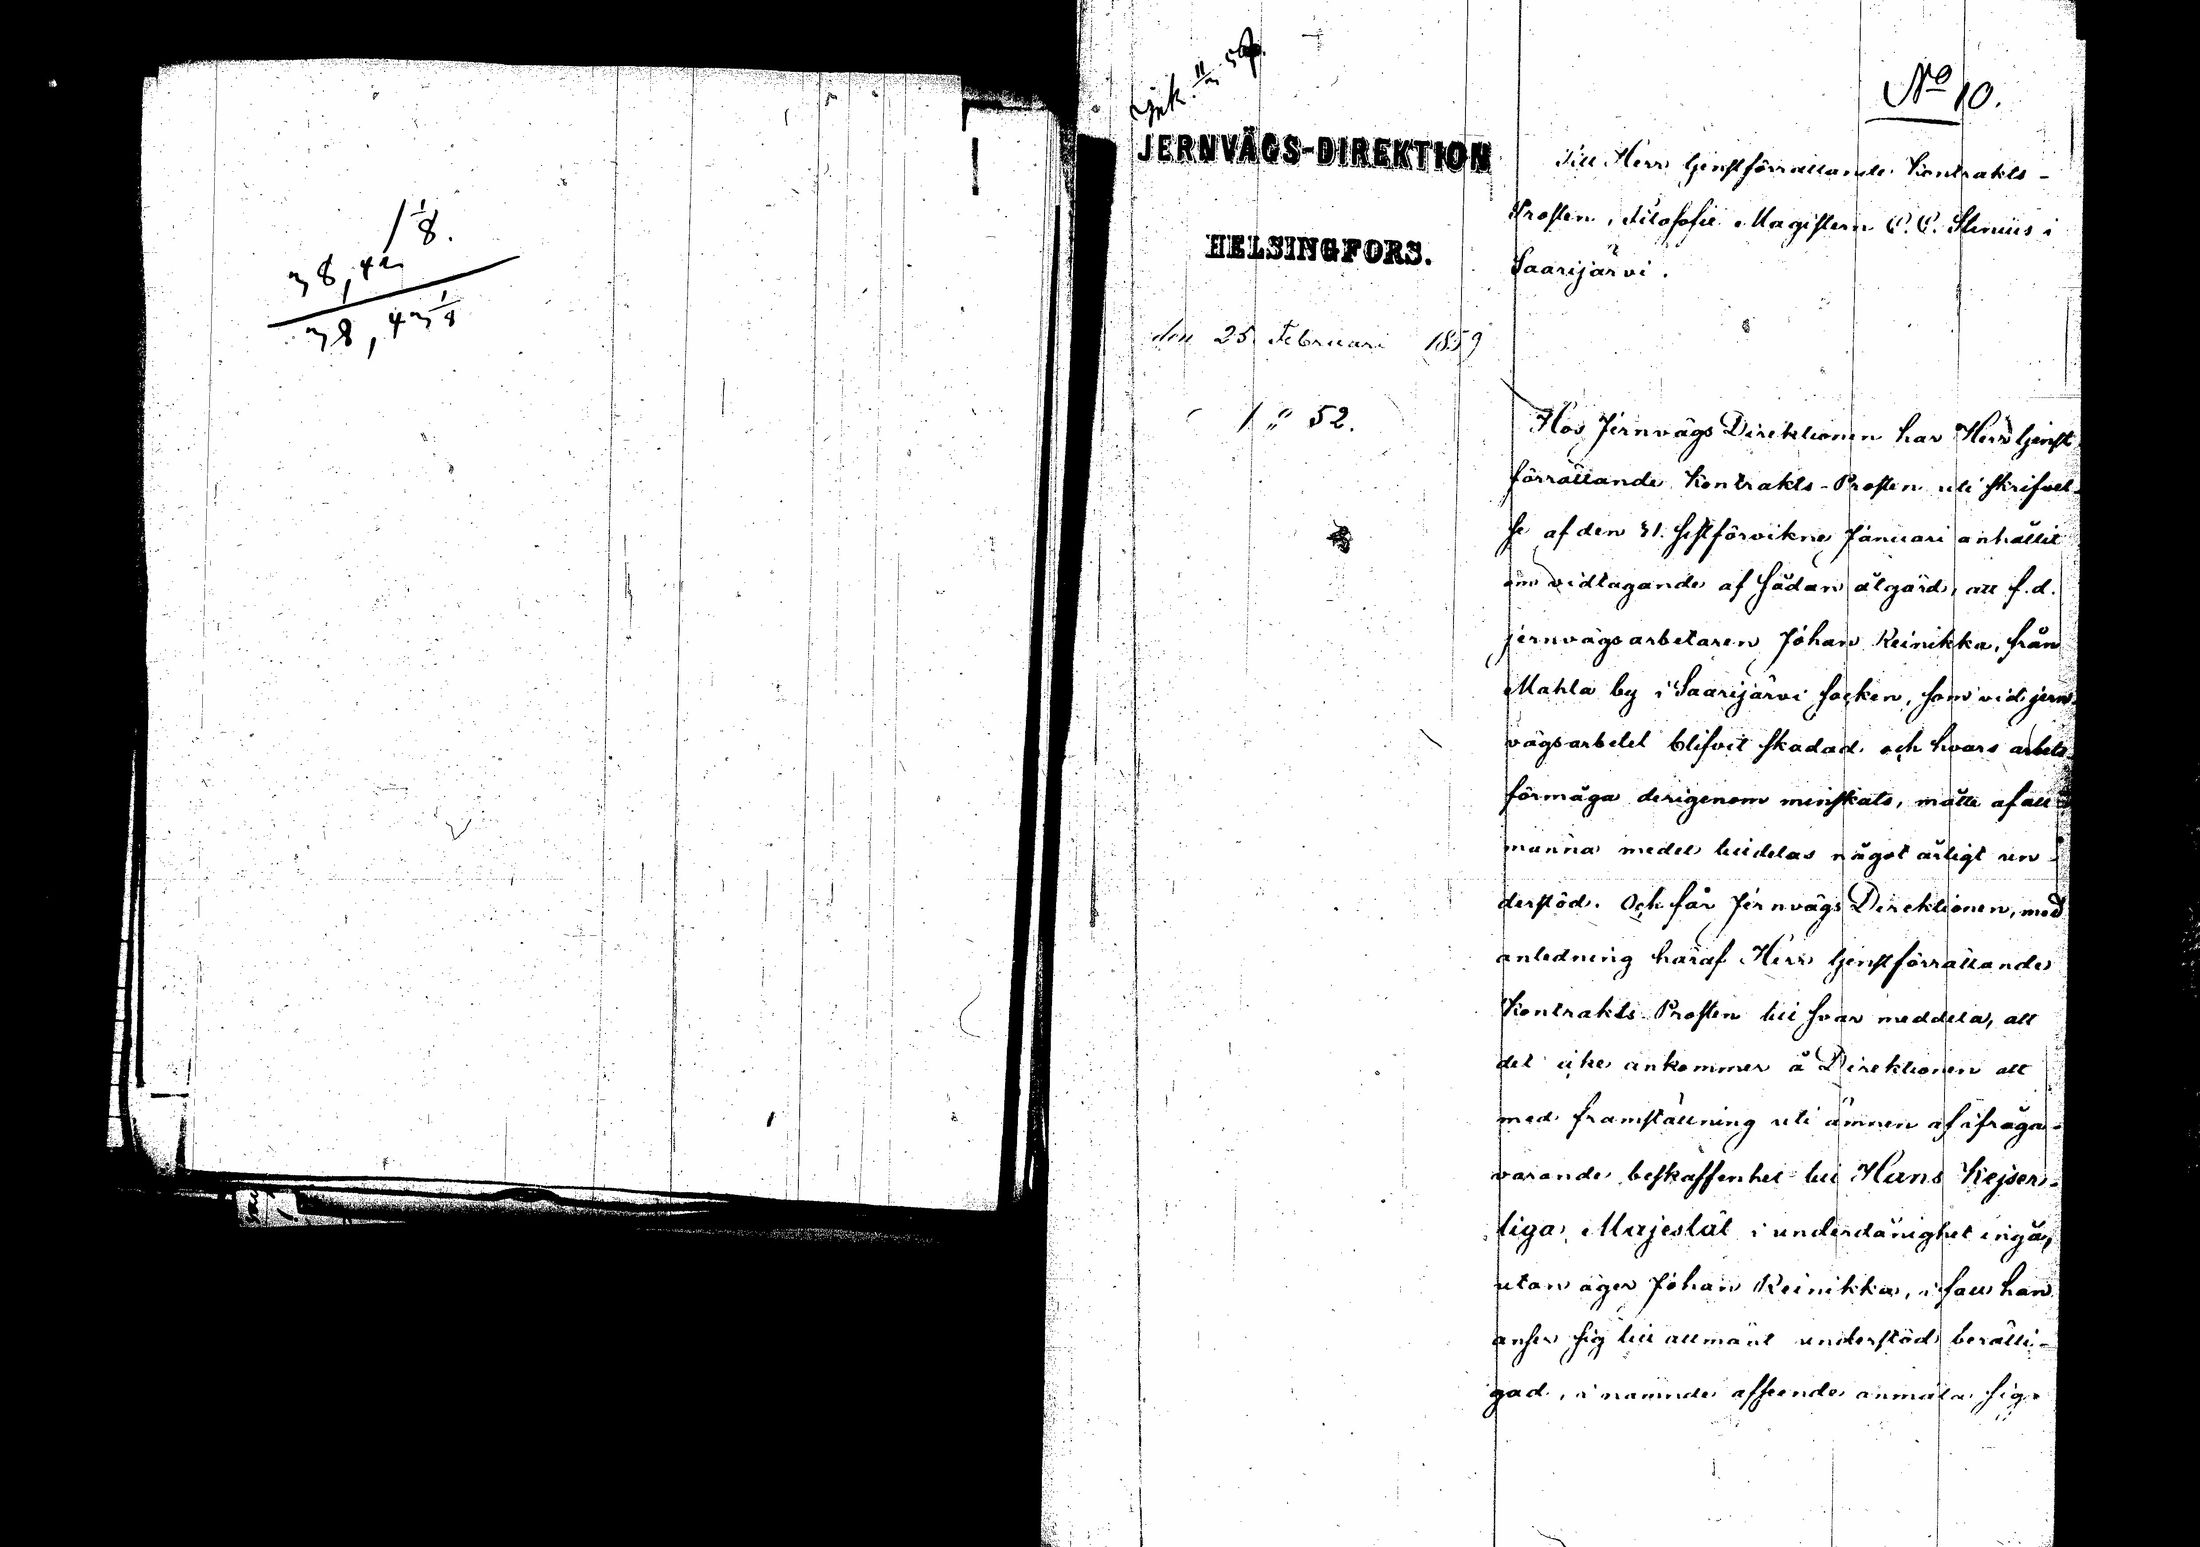 1 1/8.
38,42
38,43 1/8
ink. 11/3 59.
No 10.
JERNVÄGS-DIREKTION
HELSINGFORS.
den 25 Februari 1859
1 " 52.
Till Herr Tjenstförrättande Kontrakts-
Prosten, Filosofie Magistern C. C. Stenius i
Saarijärvi.
Hos Jernvägs Direktionen har Herr Tjenst
förrättande Kontrakts-Prosten uti skrifvel-
se af den 31. sistförvikne Januari anhållit
om vidtagande af sådan åtgärd, att f.d.
jernvägsarbetaren Johan Reinikka, från
Mahla by i Saarijärvi socken, som vid jern-
vägsarbetet blifvit skadad och hvars arbets-
förmåga derigenom minskats, måtte af all-
männa medel tilldelas något årligt un-
derstöd. Och får Jernvägs Direktionen, med
anledning häraf Herr Tjenstförrättande
Kontrakts Prosten till svar meddela, att
det icke ankommer å Direktionen att
med framställning uti ämnen af ifråga-
varande beskaffenhet till Hans Kejser-
liga Majestät i underdånighet ingå,
utan äger Johan Reinikka, i fall han
anser sig till allmänt understöd berätti-
gad, i nämnde afseende anmäla sig